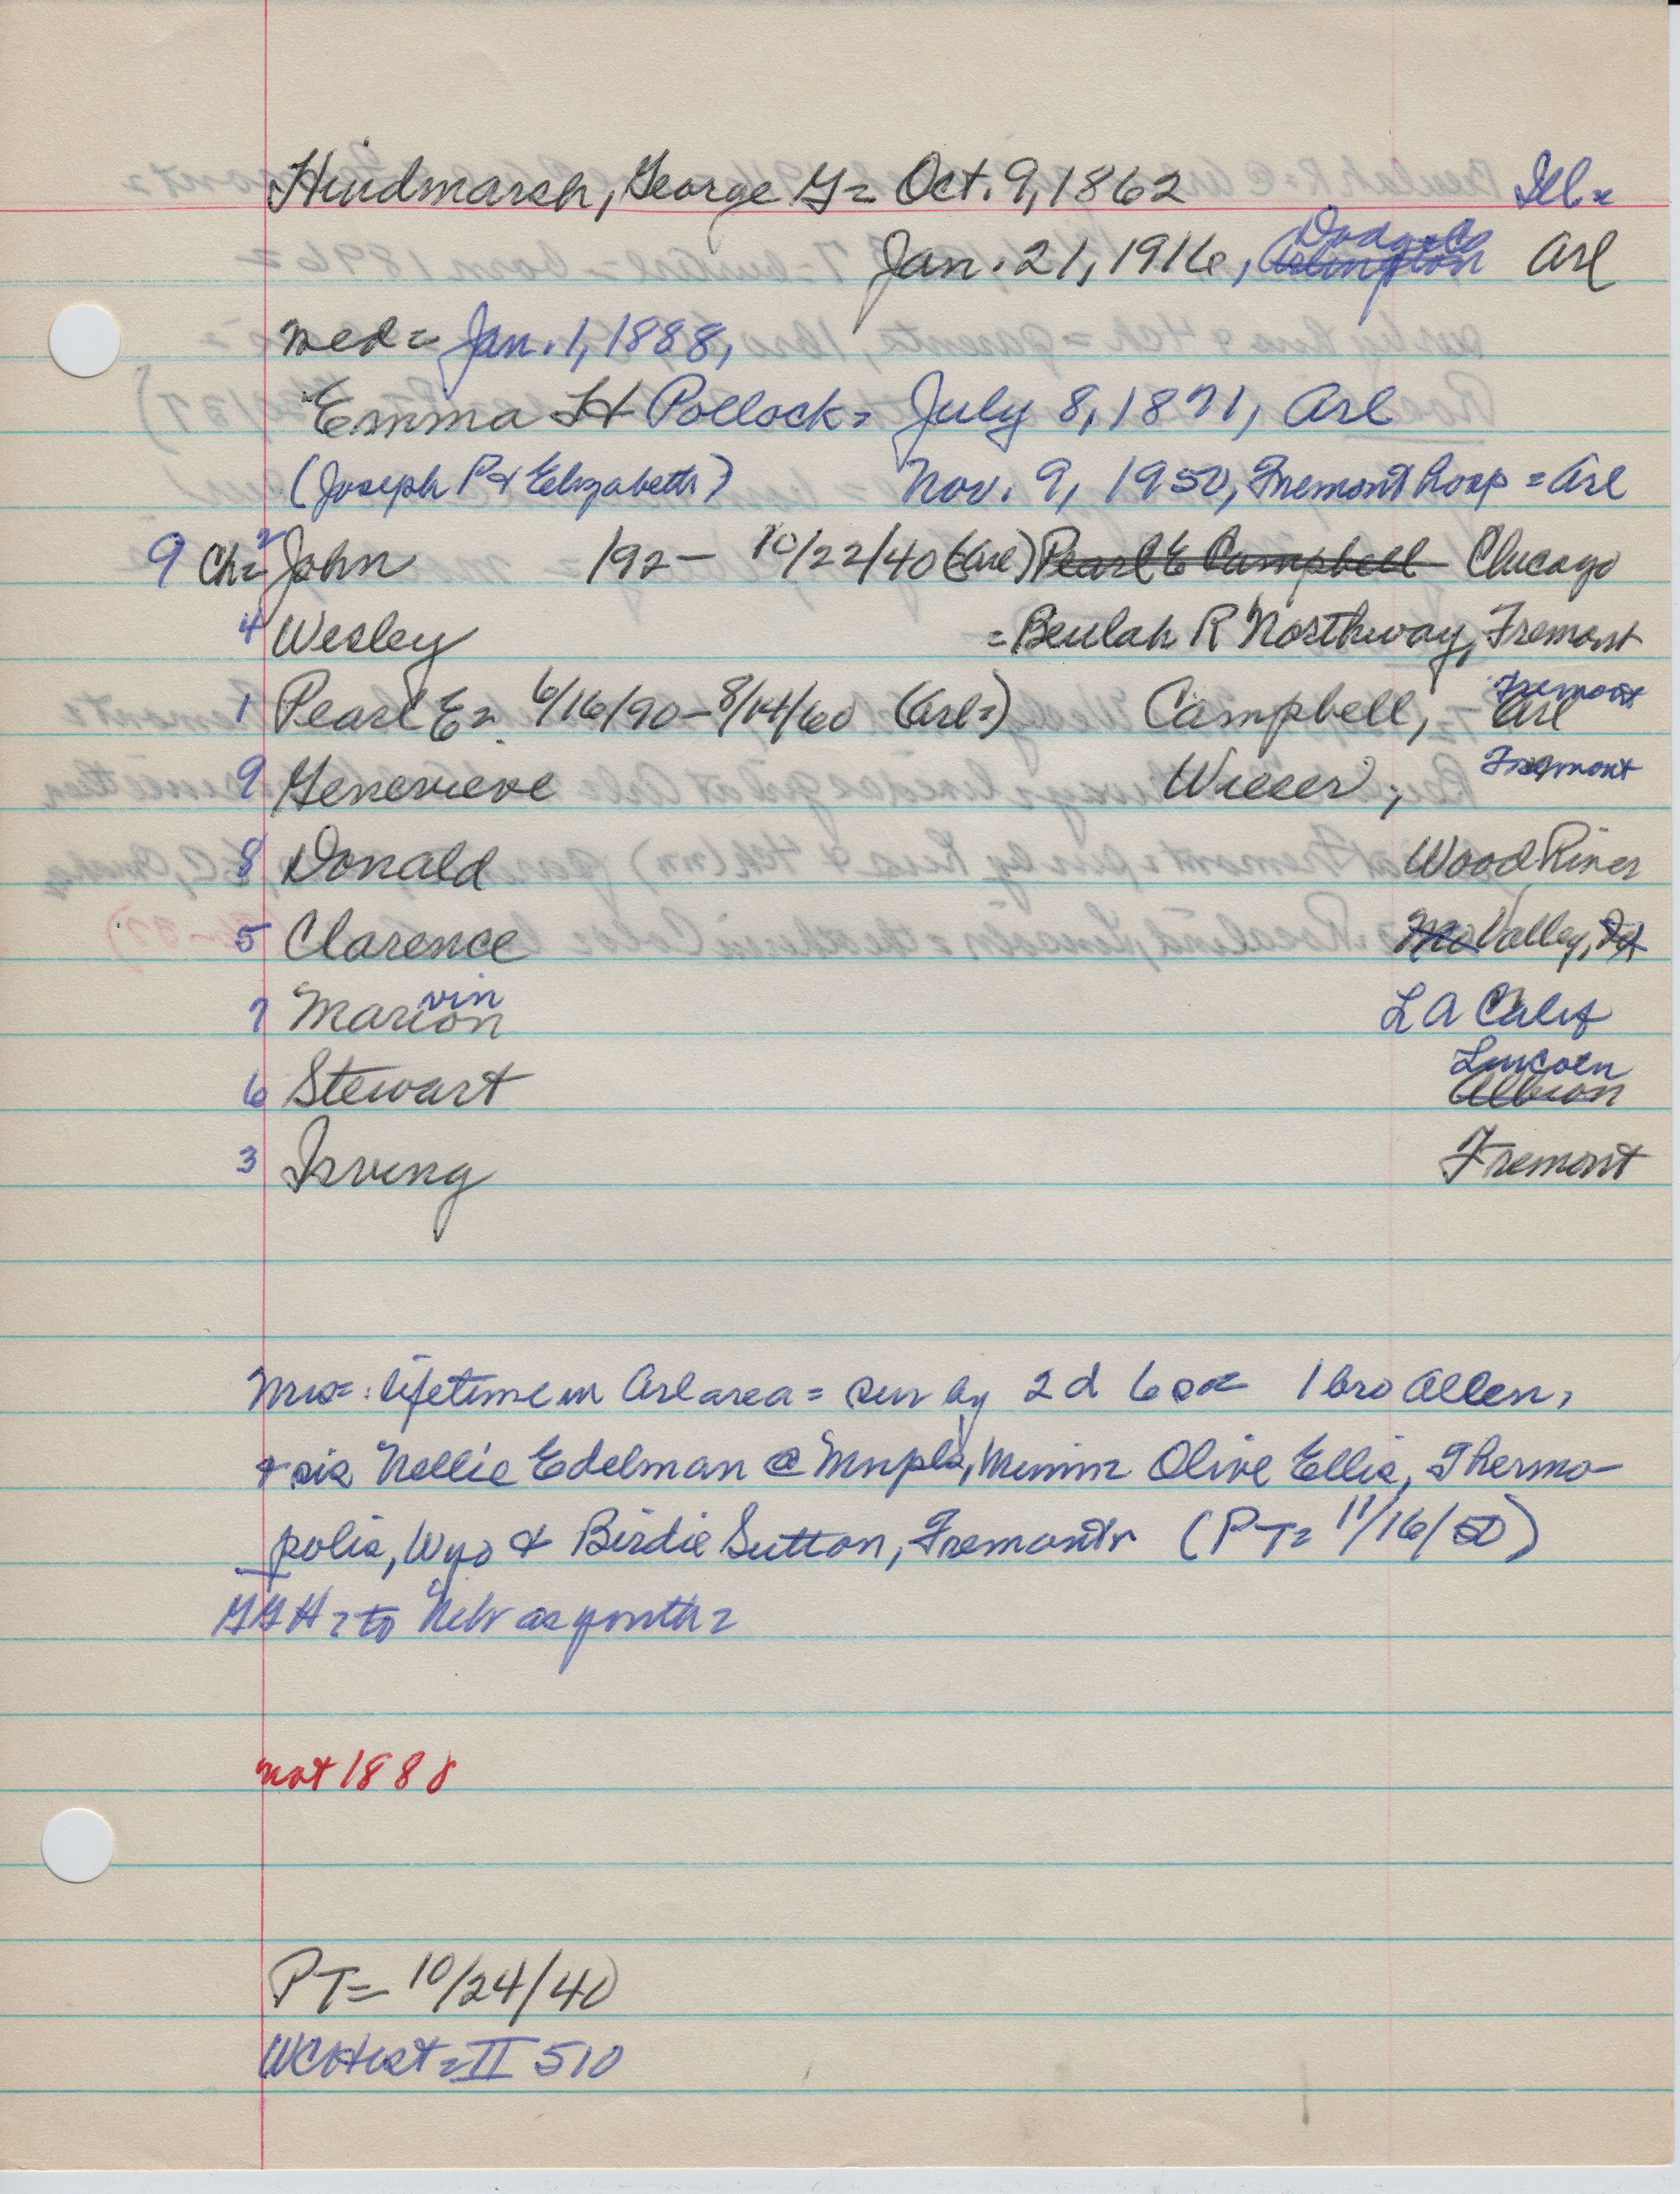 Hindmarsh, George G= Oct. 9, 1862 Ill=
Jan. 21, 1916, Arlington Dodge Co Arl
med= Jan. 1, 1888,
Emma H Pollock= July 8, 1871, Arl
(Joseph P & Elizabeth) Nov. 9, 1950, Fremont hosp = Arl
9 Ch= 2 John 192- 10/22/40 (Arl) Pearl E Campbell Chicago
4 Wesley =Beulah R Northway, Fremont
1 Pearl E= 6/16/90-8/14/60 (Arl=) Campbell, Arl Fremont
9 Genevieve Wieser, Fremont
8 Donald Wood River
5 Clarence Mo Valley, Ia
7 Marion vin L A Calif
6 Stewart Albion Lincoln
3 Irving Fremont
Mrs=: lifetime in Arl area = sur by 2 d 6 so= 1 bro Allen,
& sis Nellie Edelman @ Mnpls, Minn= Olive Ellis, Thermo-
polis, Wyo & Birdie Sutton, Fremont= (PT= 11/16/50)
GGH= to Nebr as youth=
not 1888
PT= 10/24/40
WCHist=II 510